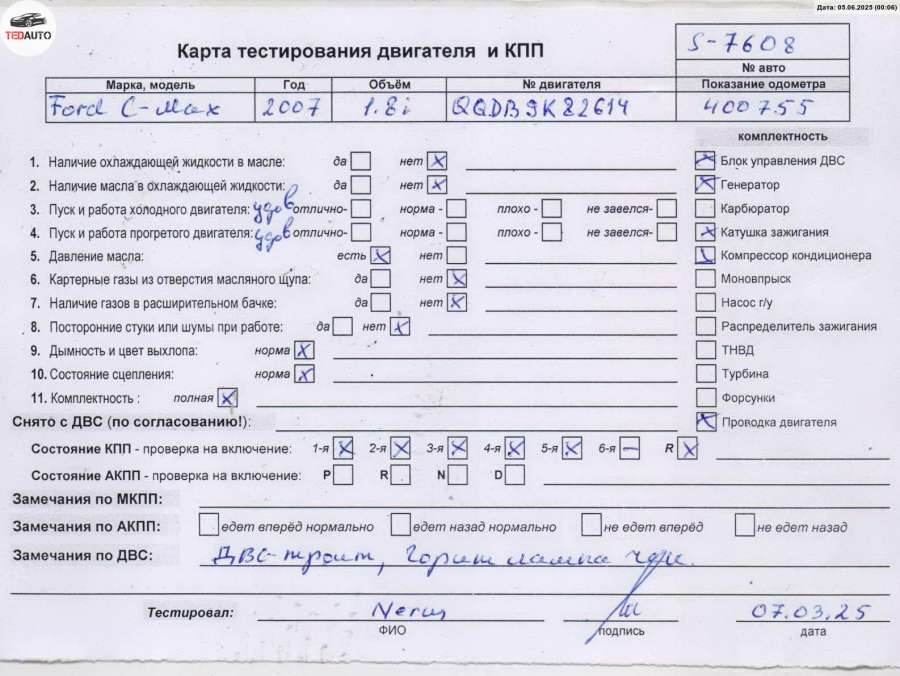 Дата: 05.06.2025 (00:06)
TEDAUTO
Карта тестирования двигателя и КПП
S-7608
№ авто
Марка, модель Год Объём № двигателя Показание одометра
Ford C-Max 2007 1.8i QQDB9K82614 400755
комплектность
1. Наличие охлаждающей жидкости в масле: да нет Блок управления ДВС
2. Наличие масла в охлаждающей жидкости: да нет Генератор
3. Пуск и работа холодного двигателя: удов отлично- норма - плохо - не завелся- Карбюратор
4. Пуск и работа прогретого двигателя: удов отлично- норма - плохо - не завелся- Катушка зажигания
5. Давление масла: есть нет Компрессор кондиционера
6. Картерные газы из отверстия масляного щупа: да нет Моновпрыск
7. Наличие газов в расширительном бачке: да нет Насос г/у
8. Посторонние стуки или шумы при работе: да нет Распределитель зажигания
9. Дымность и цвет выхлопа: норма ТНВД
10. Состояние сцепления: норма Турбина
11. Комплектность : полная Форсунки
Снято с ДВС (по согласованию!): Проводка двигателя
Состояние КПП - проверка на включение: 1-я 2-я 3-я 4-я 5-я 6-я R
Состояние АКПП - проверка на включение: P R N D
Замечания по МКПП:
Замечания по АКПП: едет вперёд нормально едет назад нормально не едет вперёд не едет назад
Замечания по ДВС: ДВС-троит, Горит лампа
Тестировал: 07.03.25
ФИО подпись дата